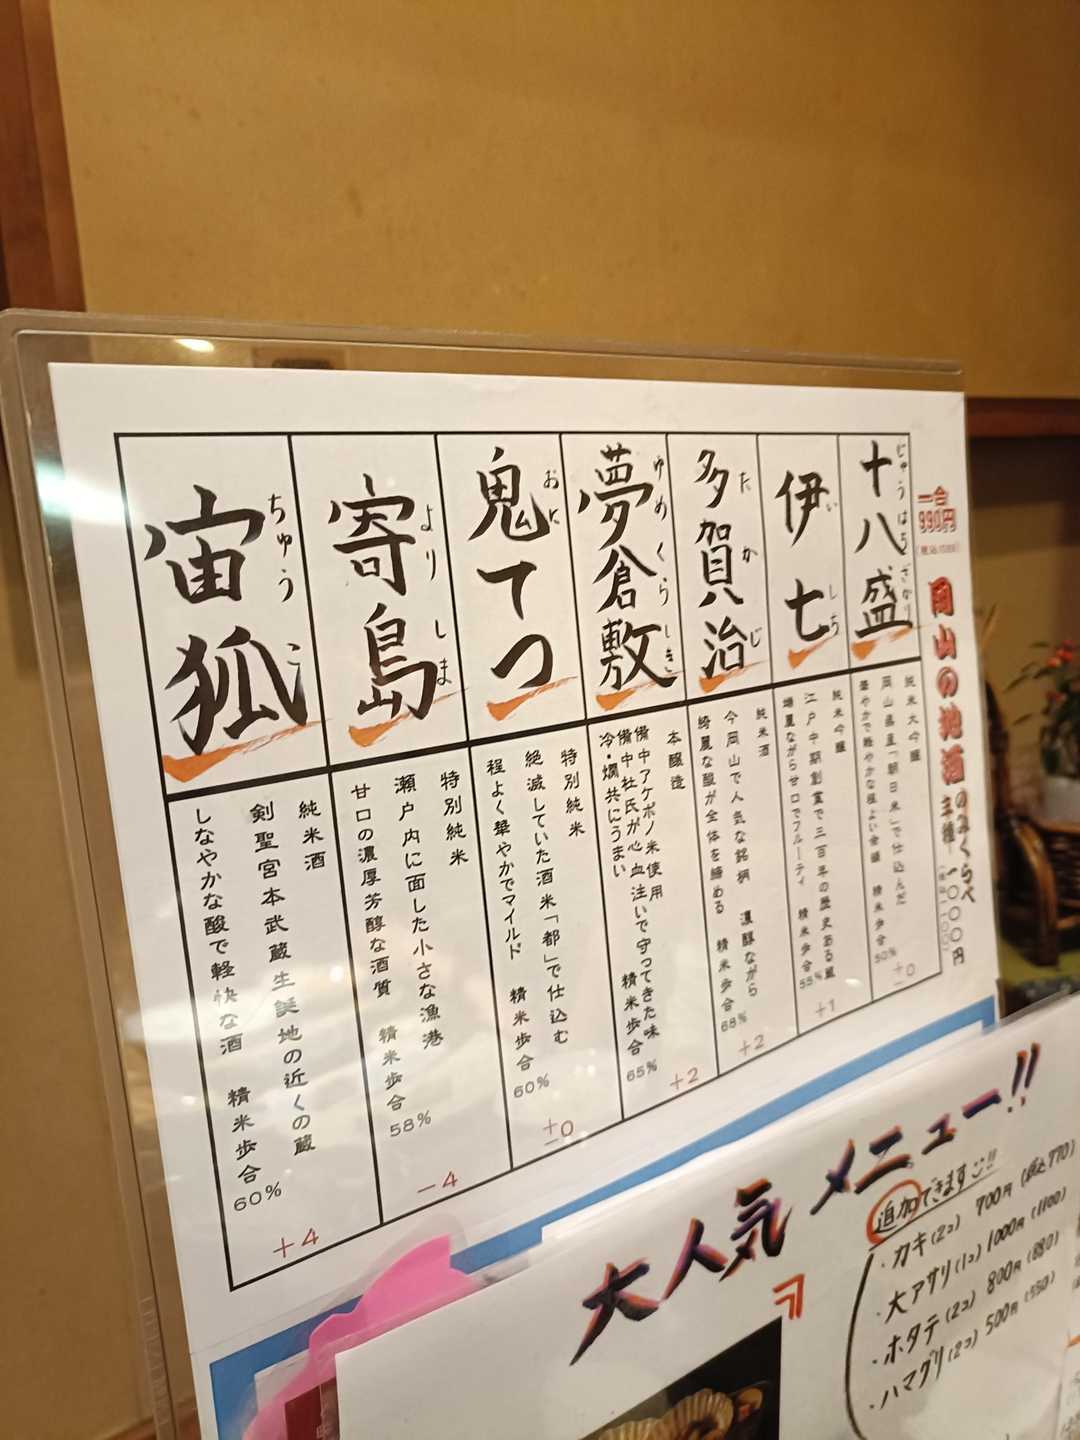 一合
990円
岡山の地酒
のみくらべ
三種 一〇〇〇円
じゅうはちざかり
十八盛
純米大吟醸
岡山県産「朝日米」で仕込んだ
華やかで軽やかな程よい余韻 精米歩合50%
±0
いしち
伊七
純米吟醸
江戸中期創業で三百年の歴史ある蔵
綺麗ながら甘口でフルーティ 精米歩合55%
+1
たかじ
多賀治
純米酒
今岡山で人気な銘柄 濃醇ながら
綺麗な酸が全体を締める 精米歩合68%
+2
ゆめくらしき
夢倉敷
本醸造
備中アケボノ米使用
備中杜氏が心血注いで守ってきた味
冷・燗共にうまい 精米歩合65%
+2
おに
鬼てつ
特別純米
絶滅していた酒米「都」で仕込む
程よく華やかでマイルド 精米歩合60%
±0
よりしま
寄島
特別純米
瀬戸内に面した小さな漁港
甘口の濃厚芳醇な酒質 精米歩合58%
-4
ちゅうこ
宙狐
純米酒
剣聖宮本武蔵生誕地の近くの蔵
しなやかな酸で軽快な酒 精米歩合60%
+4
大人気メニュー!!
追加できます!!
・カキ(2コ) 700円 (税込770)
・大アサリ(1コ) 1000円 (1100)
・ホタテ(2コ) 800円 (880)
・ハマグリ(2コ) 500円 (550)